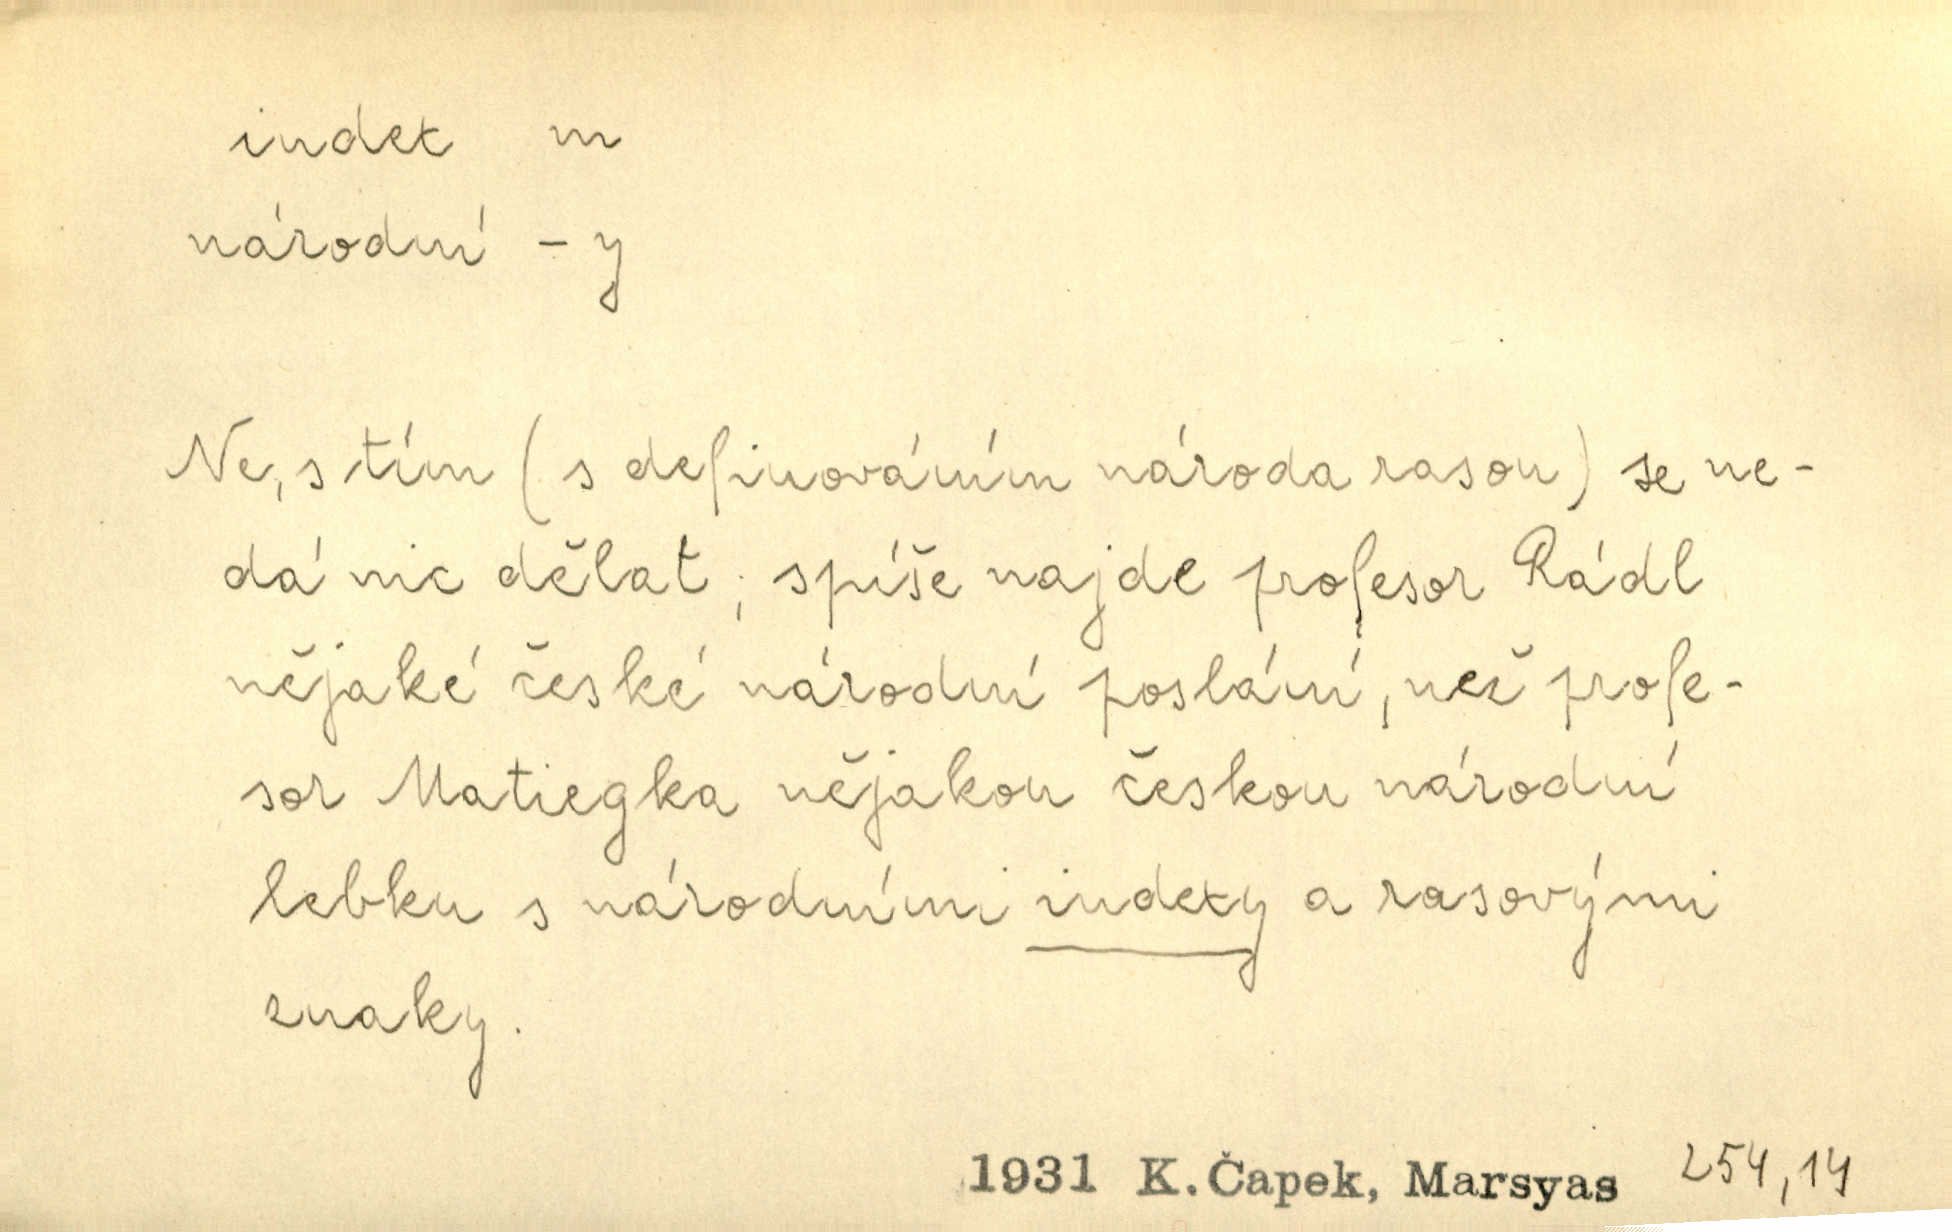 index m
národní - y
Ne, s tím (s definováním národa rasou) se ne-
dá nic dělat; spíše najde profesor Rádl
nějaké české národní poslání, než profe-
sor Matiegka nějakou českou národní
lebku s národními indexy a rasovými
znaky.
1931 K. Čapek, Marsyas 254,14